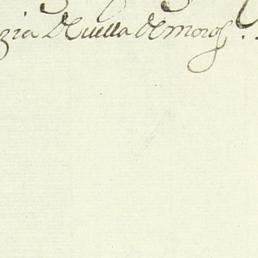 zia Deuella de moros